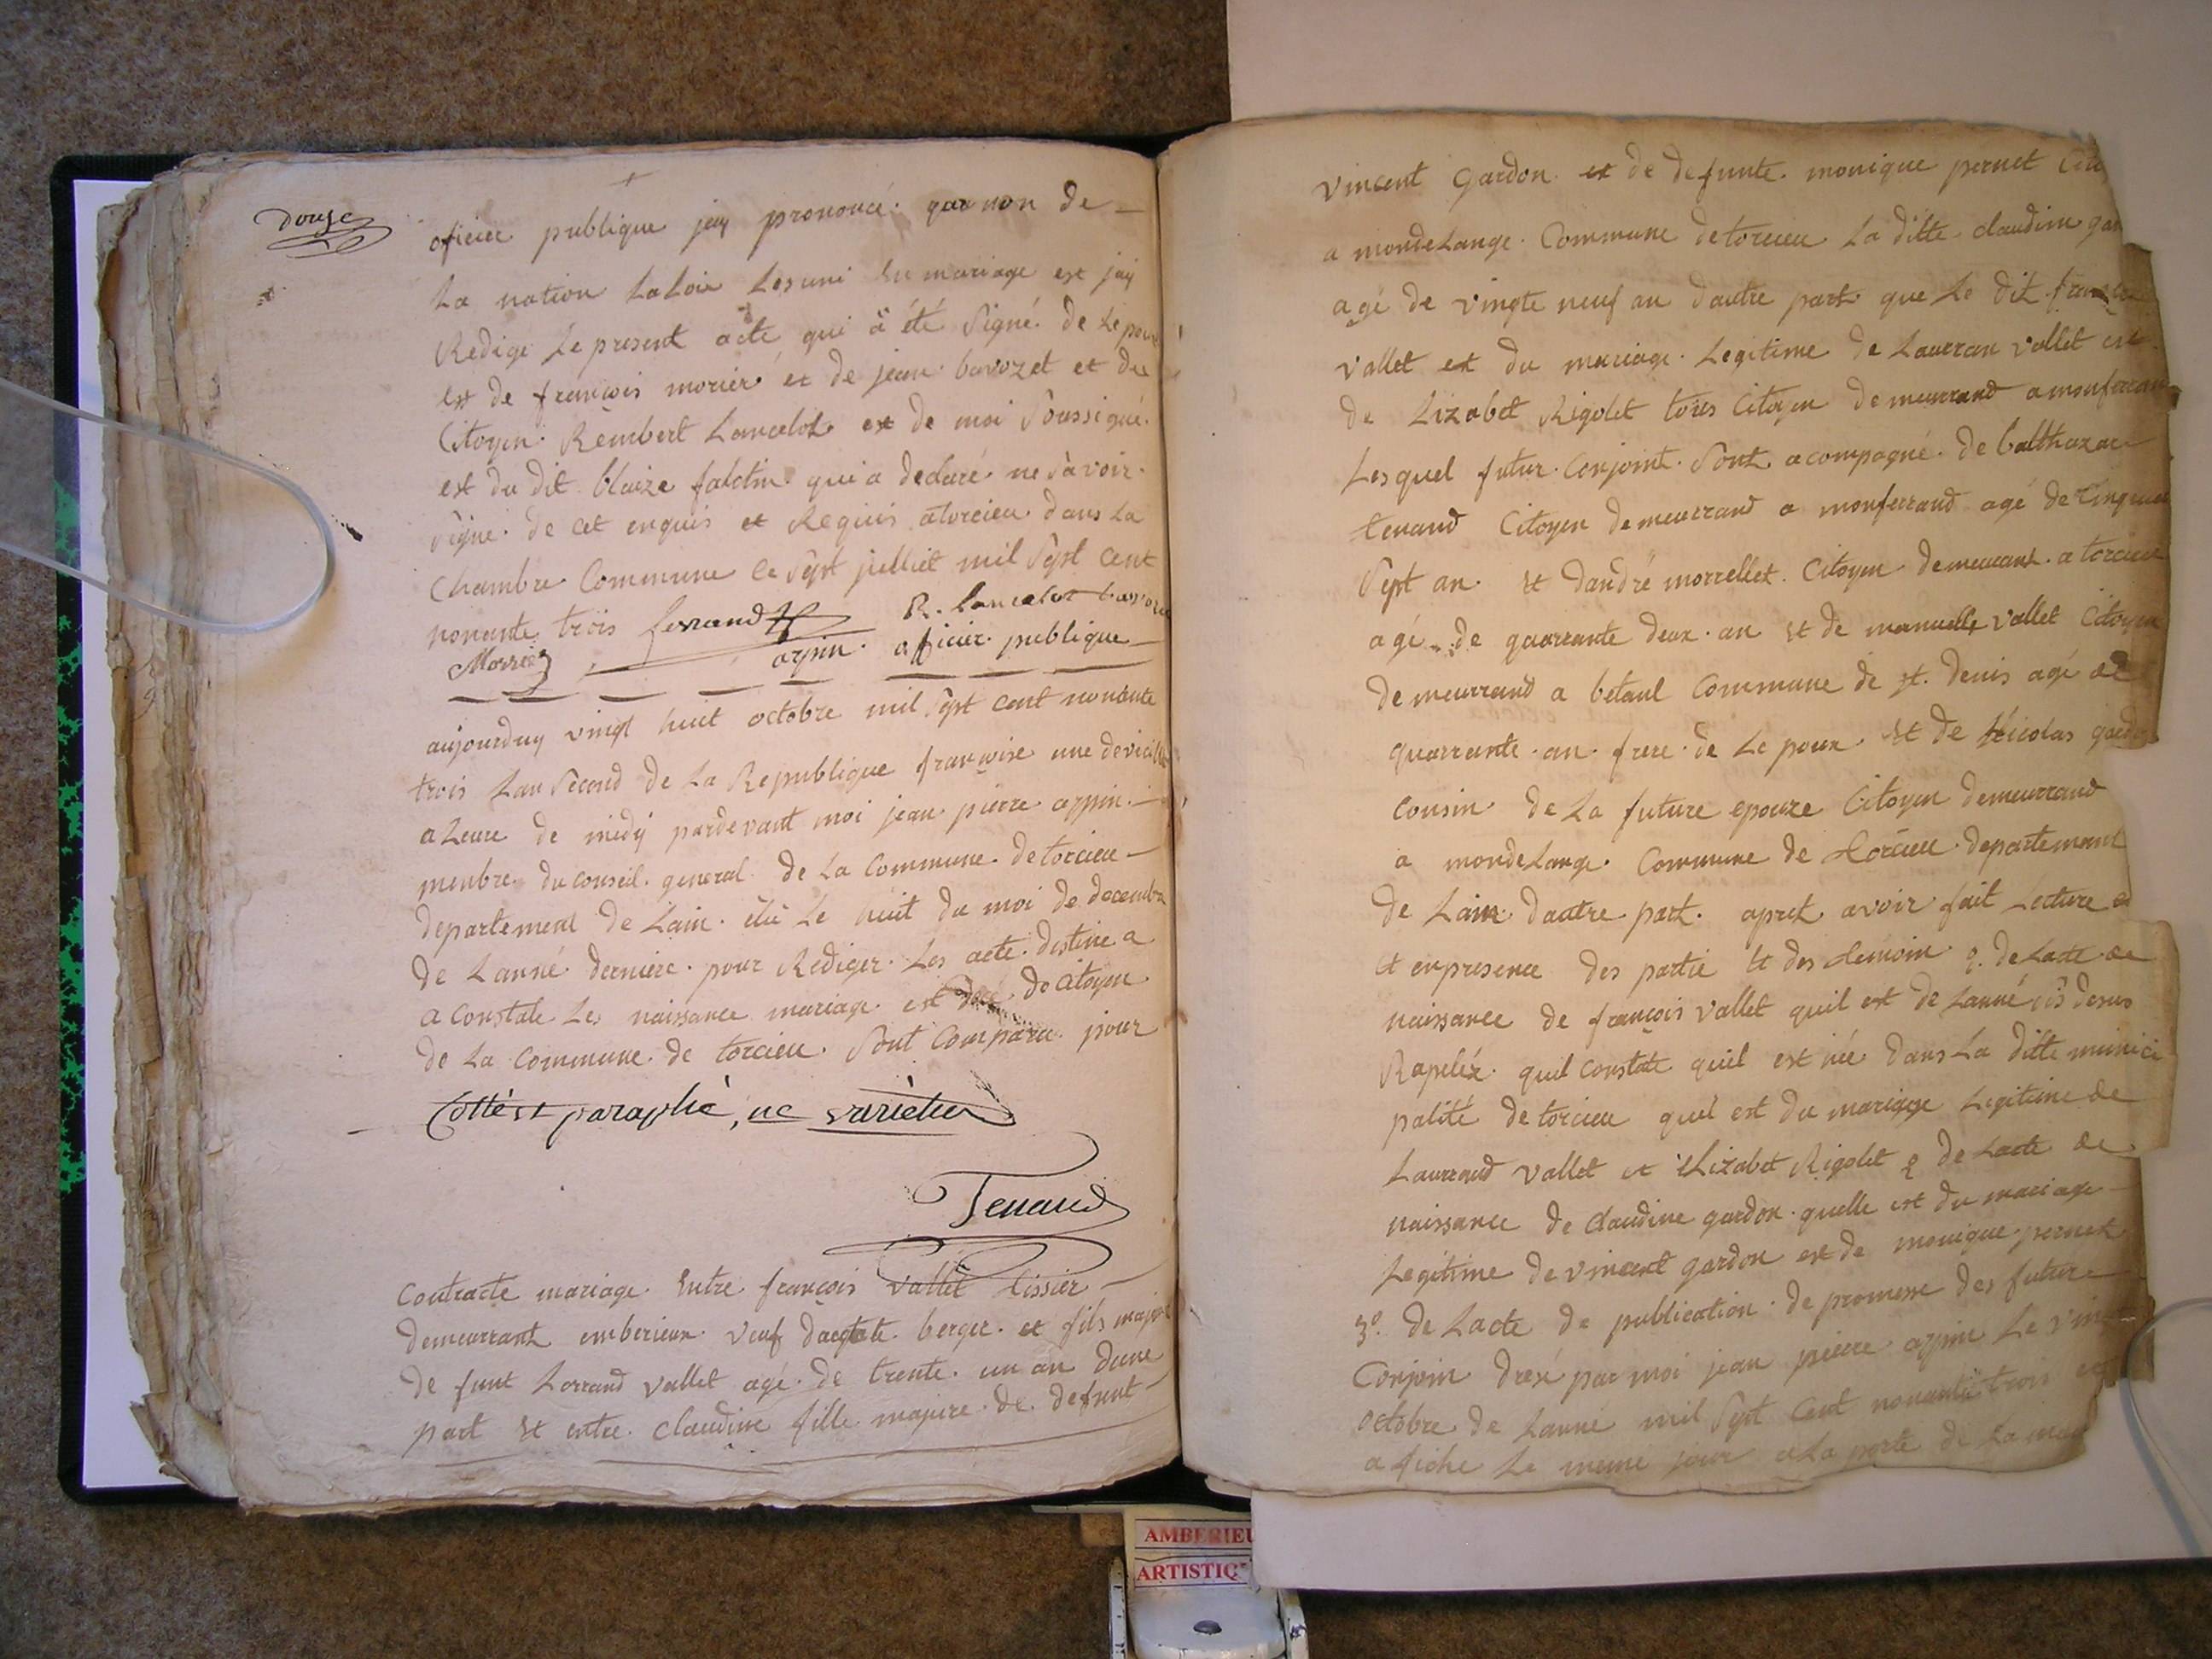 douze
oficier publique jay prononcé quau non de
La nation La Loix Lesuni En mariage est jay
Redigé Le present acte qui a été Signé de Lepoux
est de françois morier et de jean bavozet et du
Citoyen Rembert Lancelot et de moi Soussigné
est du dit blaize falctin qui a declaré ne Savoir
Signe de cet enquis et Requis atorcieu dans La
Chambre Commune ce Sept julliet mil Sept cent
nonante trois ferrand R. Lancelot bavozet
Morriez arpin officier publique
aujourduy vingt huit octobre mil Sept cent nonante
trois Lan Second de La Republique françoise une
a Leure de midy pardevant moi jean pierre arpin
menbre du conseil general de La Commune de torcieu
departement de Lain élu Le huit du moi de decembre
de Lanné derniere pour Rediger Les acte destine a
a Constate Les naissance mariage est de Citoyen
de La Commune de torcieu Sont Comparu pour
Cotté et paraphé, ne varietur
Tenand
Contracte mariage Entre françois vallet tissier
demeurrant emberieux veuf dagate berger et fils majeur
de funt Lorrand vallet agé de trente un an dune
part Et entre claudine fille majure de defunt
vincent gardon et de defunte monique pernet
a mondelange Commune de torcieu La ditte claudine
agé de vingte neuf an dautre part que Le dit
vallet est du mariage Legitime de Laurran vallet est
de Lizabet Rigolet tous Citoyen demeurrand amonferrand
Lesquel futur Conjoint Sont acompagné de balthazar
tenand Citoyen demeurrand a monferrand agé de Cinquante
Sept an Et dandré morrellet Citoyen demeurant a torcieu
agé de quarrante deux an Et de manuelle vallet Citoyen
demeurrand a betant Commune de St. denis agé de
quarrante an frere de Le poux Et de Nicolas gardon
Cousin de La future epouze Citoyen demeurrand
a mondelange Commune de torcieu departement
de Lain dautre part apret avoir fait Lecture
Et enpresence des partie Et des temoin 1. de Lacte de
naissance de françois vallet quil est de Lanné cis desus
Rapeléx quil Constate quil est née dans La ditte munici
palité de torcieu quil est du mariage Legitime de
Laurrand vallet et Elizabet Rigolet 2 de Lacte de
naissance de claudine gardon quelle est du mariage
Legitime de vincent gardon est de monique pernet
3º. de Lacte de publication de promesse des future
Conjoin drexé par moi jean pierre arpin Le vingt
octobre de Lanné mil Sept Cent nonante trois et
afiche Le meme jour a La porte de La
AMBERIEU
ARTISTIQ